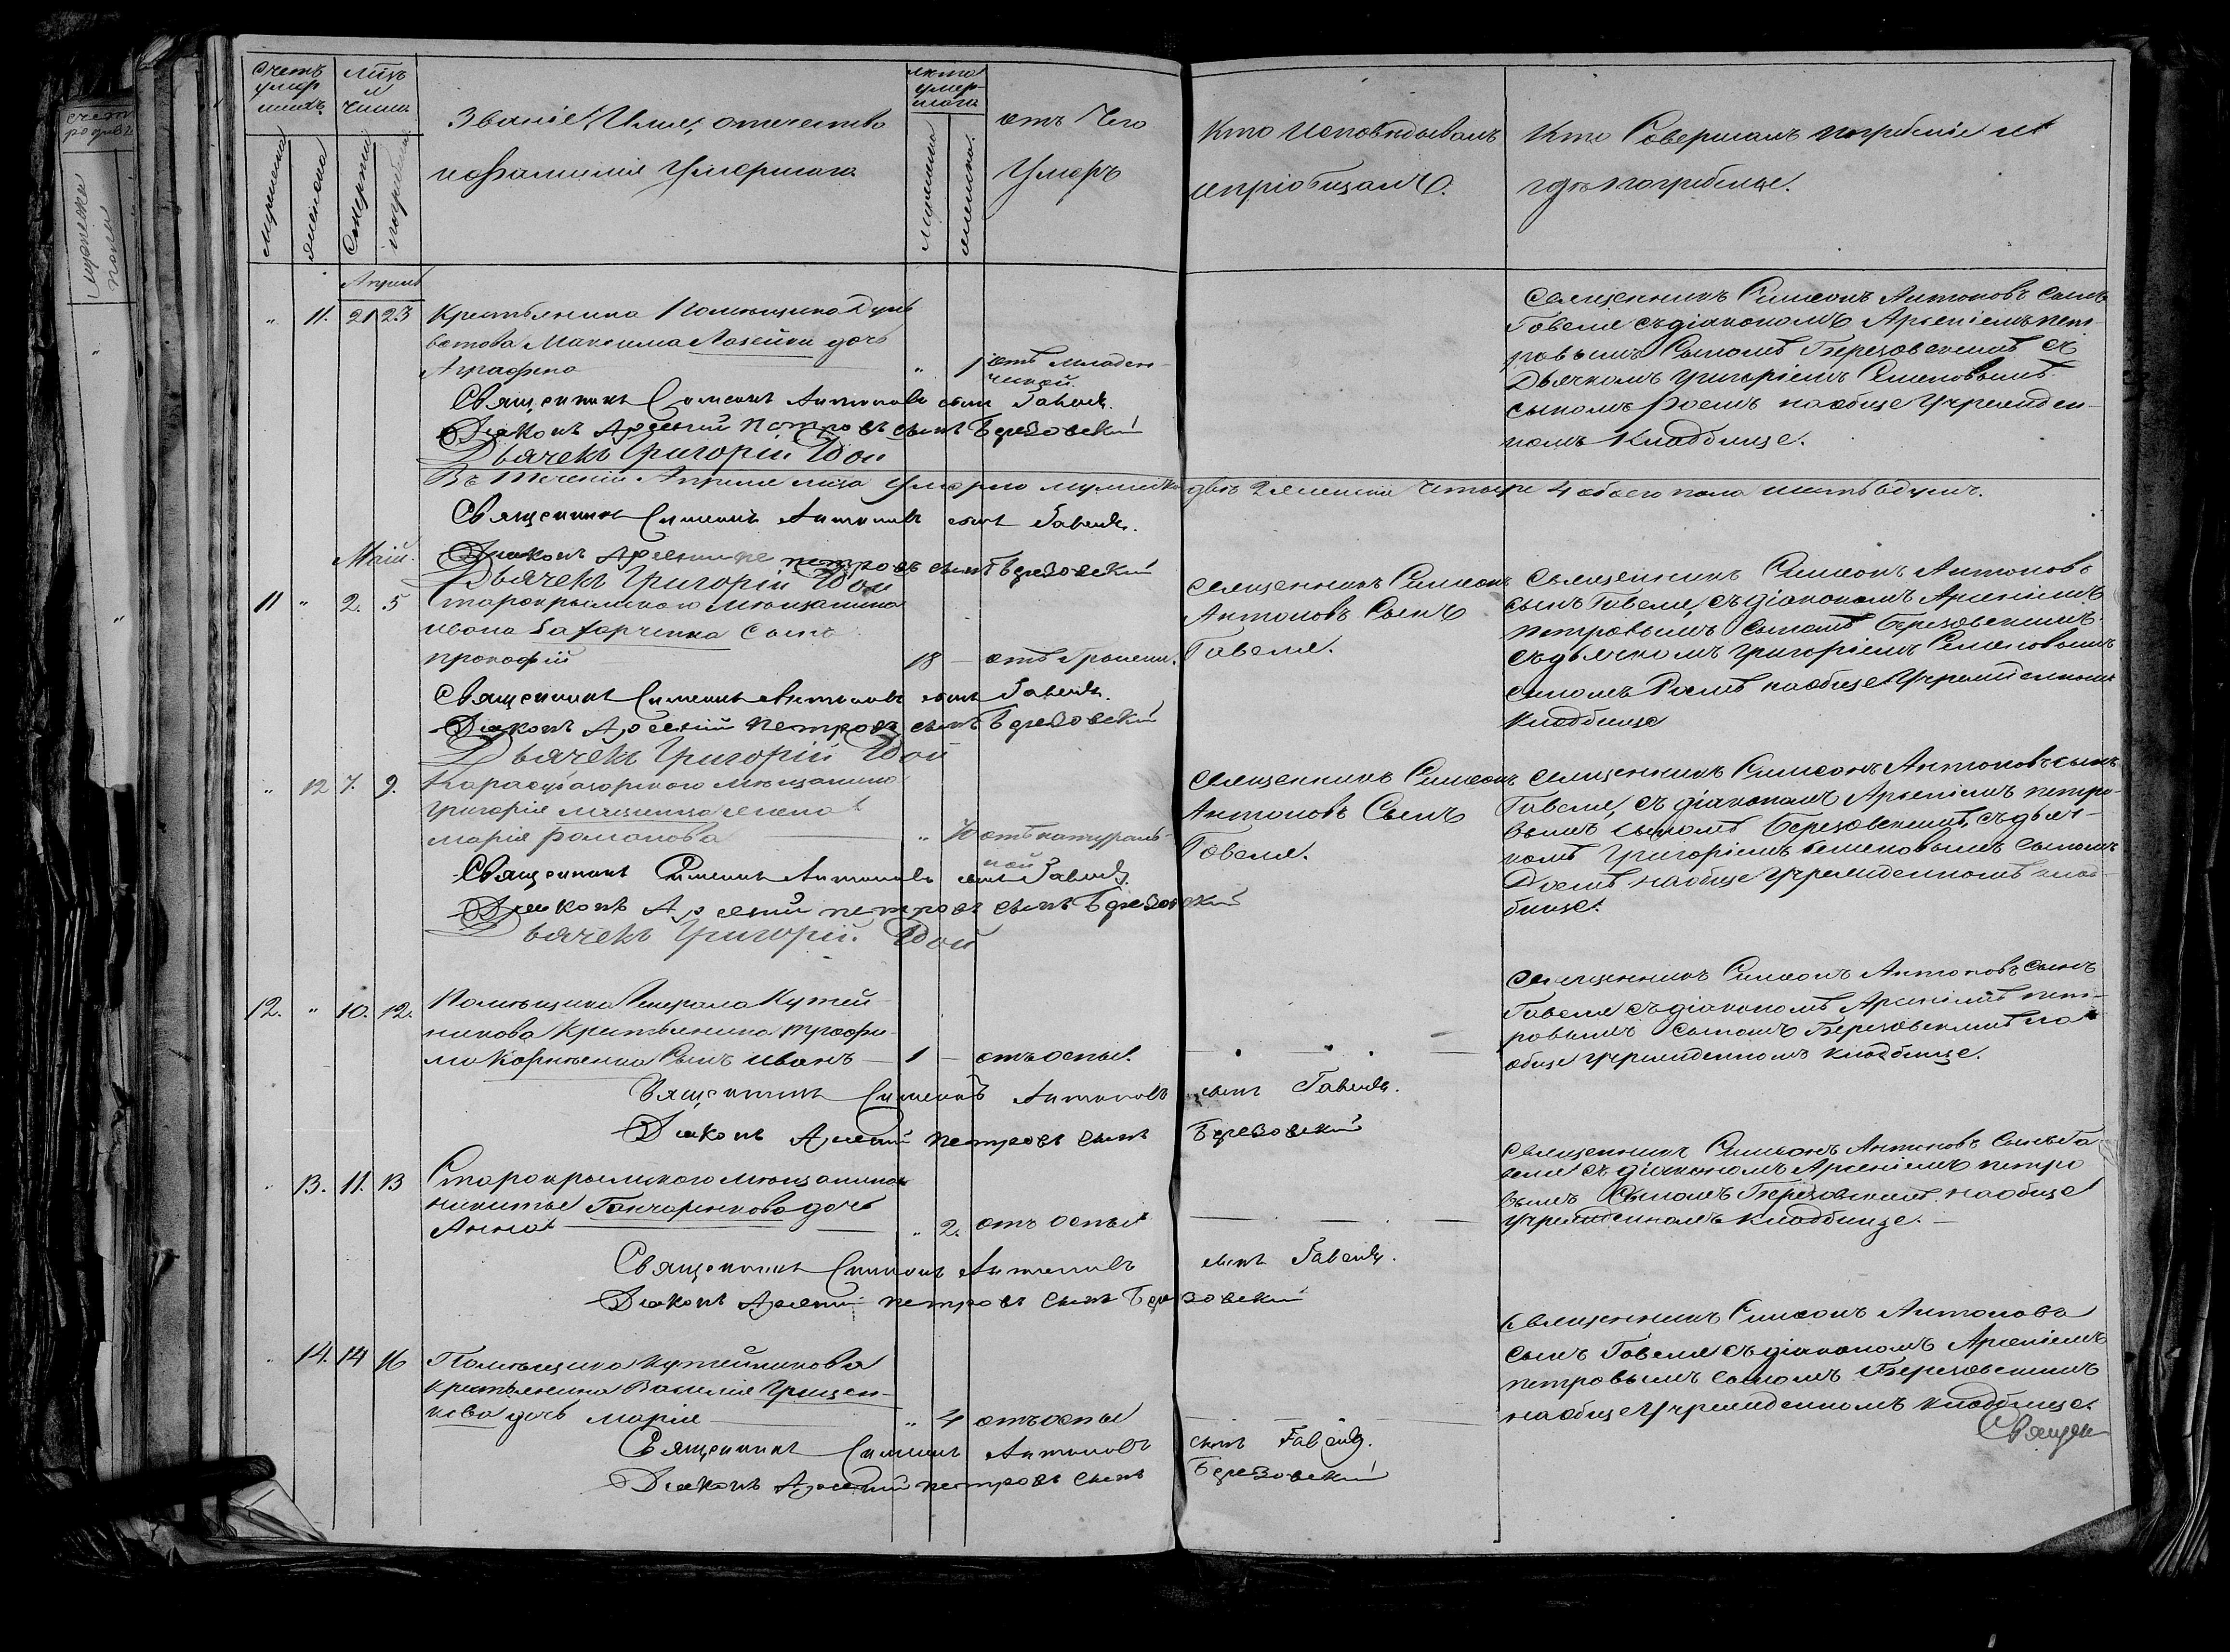 Счетъ умершихъ.
Мцъ и число
Званіе, Имя, отечество
и фамилія Умершаго
лета умершаго
отъ чего
Умеръ
Кто исповѣдывалъ
и пріобщалъ.
Кто Совершалъ погребеніе и
гдѣ погребены.
мужеска
женска
Смерти
погребенія
Мужеска
женска
Апрель
" 11. 21 23 Крестьянина Помѣщика
Максима дочь
Аграфена " 1 отъ младен-
ческой.
Священникъ Симеонъ Антоновъ сынъ
Гавеля съ діакономъ Арсеніемъ Пет-
ровымъ Сыномъ Березовскимъ съ
Дьячкомъ Григоріемъ Семеновымъ
сыномъ наобще Учрежден-
номъ Кладбище.
Священникъ Симеонъ Антоновъ сынъ Гавеля.
Діаконъ Арсеній Петровъ сынъ Березовскій
Дьячекъ Григорій
Въ теченіи Апреля мца Умерло мужеска двѣ 2 женска четыре 4 обоего пола шесть 6 душъ.
Священникъ Симеонъ Антоновъ сынъ Гавеля.
Маій.
Діаконъ Арсеній Петровъ сынъ Березовскій
Дьячекъ Григорій
11 " 2. 5 Старокрымского Мѣщанина
Ивана Сынъ
Прокофій 18 — отъ
Священникъ Симеонъ
Антоновъ Сынъ
Гавеля.
Священникъ Симеонъ Антоновъ
сынъ Гавеля, съ діакономъ Арсеніемъ
Петровымъ Сыномъ Березовскимъ
съ дьячкомъ Григоріемъ Семеновымъ
сыномъ наобще Учрежденномъ
Кладбище
Священникъ Симеонъ Антоновъ сынъ Гавеля.
Діаконъ Арсеній Петровъ сынъ Березовскій
Дьячекъ Григорій
" 12 7. 9. Карасубазорского Мѣщанина
Григорія жена
Марія Романова " 70 отъ натураль-
ной
Священникъ Симеонъ
Антоновъ Сынъ
Гавеля.
Священникъ Симеонъ Антоновъ сынъ
Гавеля, съ діакономъ Арсеніемъ Петро-
вымъ сыномъ Березовскимъ, съ дьяч-
комъ Григоріемъ Семеновымъ сыномъ
наобще Учрежденномъ клад-
бище.
Священникъ Симеонъ Антоновъ сынъ Гавеля.
Діаконъ Арсеній Петровъ сынъ Березовскій
Дьячекъ Григорій
12. " 10. 12. Помѣщика Генерала Кутей-
никова Крестьянина Трофи-
ма Корніенка Сынъ Иванъ 1 — отъ оспы.
Священникъ Симеонъ Антоновъ Сынъ
Гавеля съ діакономъ Арсеніемъ Пет-
ровымъ Сыномъ Березовскимъ на
обще Учрежденномъ кладбище.
Священникъ Симеонъ Антоновъ сынъ Гавеля.
Діаконъ Арсеній Петровъ сынъ Березовскій
" 13. 11. 13 Старокрымского Мѣщанина
Никиты Ганчаренкова дочь
Анна " 2. отъ оспы
Священникъ Симеонъ Антоновъ Сынъ Га-
веля съ діакономъ Арсеніемъ Петро-
вымъ Сыномъ Березовскимъ наобще
Учрежденномъ кладбище. —
Священникъ Симеонъ Антоновъ сынъ Гавеля.
Діаконъ Арсеній Петровъ сынъ Березовскій
" 14. 14 16 Помѣщика Кутейникова
крестьянина Василія Грищен-
кова дочь Марія " 4 отъ оспы
Священникъ Симеонъ Антоновъ
Сынъ Гавеля съ діакономъ Арсеніемъ
Петровымъ Сыномъ Березовскимъ
наобще Учрежденномъ кладбище.
Священникъ Симеонъ Антоновъ сынъ Гавеля.
Діаконъ Арсеній Петровъ сынъ Березовскій
Священ